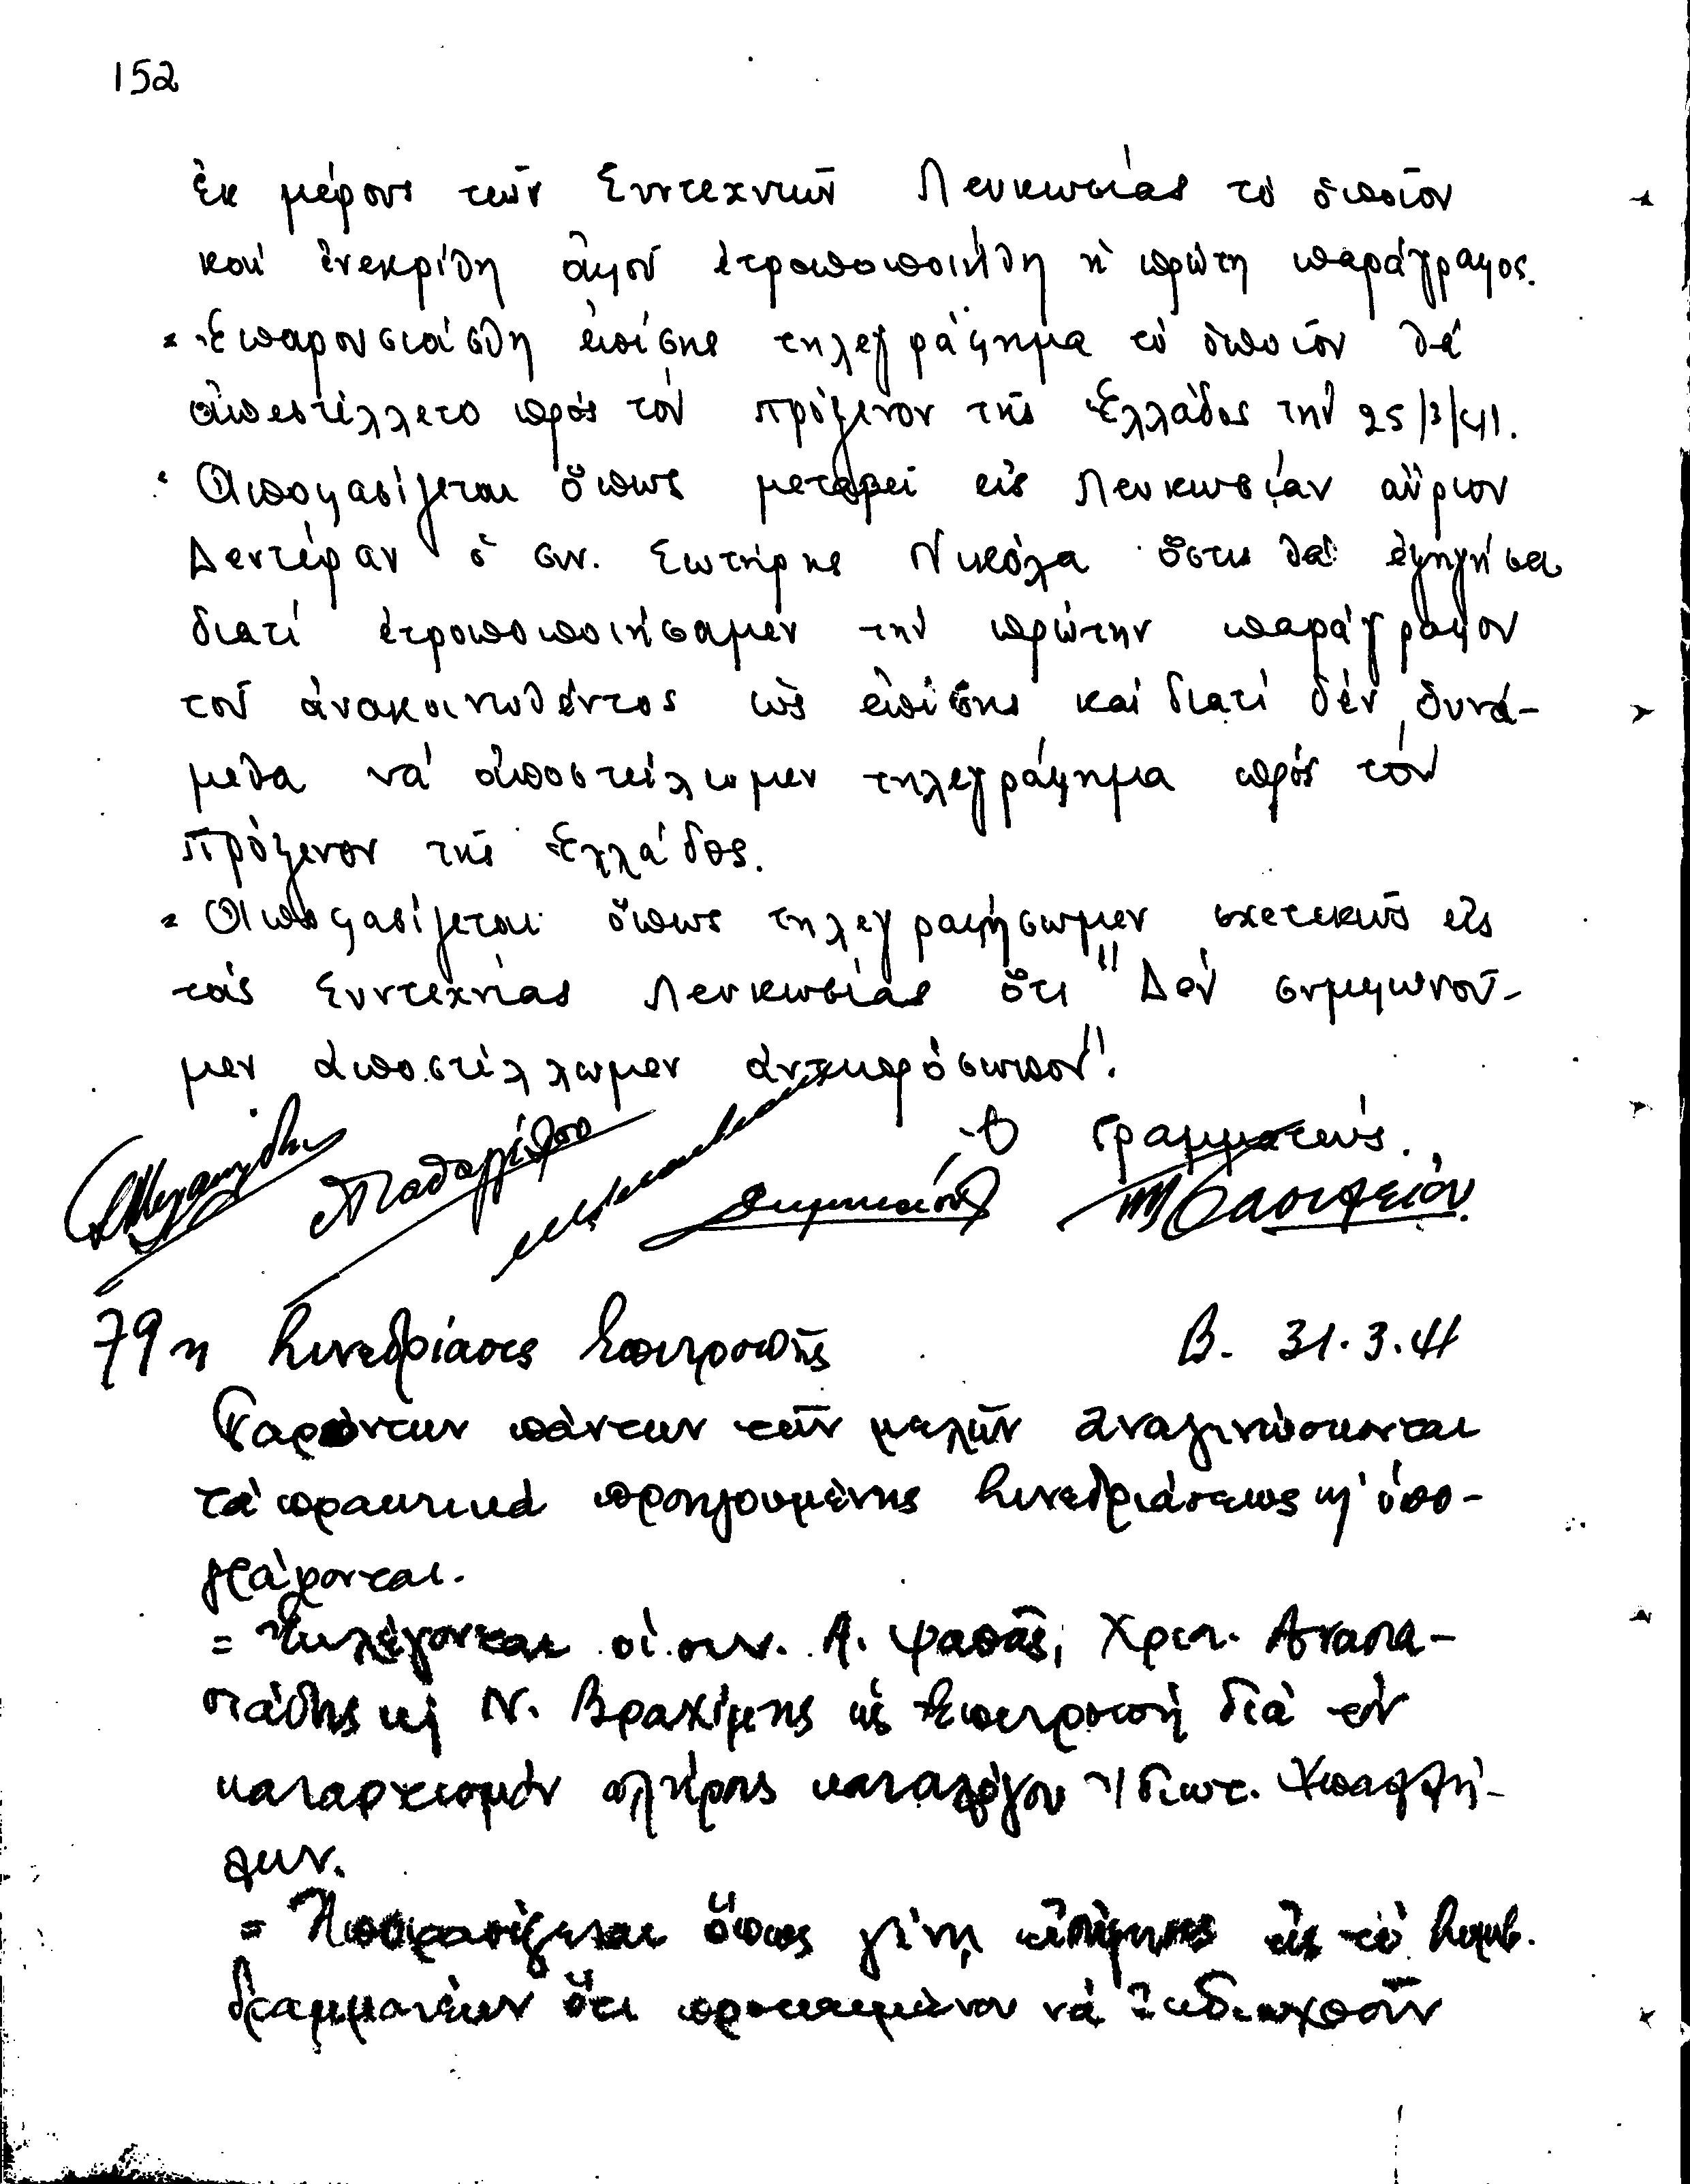 152
ἐκ μέρους τῶν Συντεχνιῶν Λευκωσίας τό ὁποῖον
καί ἐνεκρίθη ἀφοῦ ἐτροποποιήθη ἡ πρώτη παράγραφος.
= Ἐπαρουσιάσθη ἐπίσης τηλεγράφημα τό ὁποῖον θά
ἀπεστέλλετο πρός τόν πρόξενον τῆς Ἑλλάδος τήν 25/3/41.
= Ἀποφασίζεται ὅπως μεταβεῖ εἰς Λευκωσίαν αὔριον
Δευτέραν ὁ συν. Σωτήρης Νικόλα ὅστις θά ἐξηγήσει
διατί ἐτροποποιήσαμεν τήν πρώτην παράγραφον
τοῦ ἀνακοινωθέντος ὡς ἐπίσης καί διατί δέν δυνά-
μεθα νά ἀποστείλωμεν τηλεγράφημα πρός τόν
Πρόξενον τῆς Ἑλλάδος.
= Ἀποφασίζεται ὅπως τηλεγραφήσωμεν σχετικῶς εἰς
τάς Συντεχνίας Λευκωσίας ὅτι "Δέν συμφωνοῦ-
μεν ἀποστέλλωμεν ἀντιπρόσωπον".
Ὁ Γραμματεύς.
79η Συνεδρίασις Ἐπιτροπῆς Β. 31.3.41
Παρόντων πάντων τῶν μελῶν ἀναγινώσκονται
τά πρακτικά προηγουμένης Συνεδριάσεως κ' ὑπο-
γράφονται.
= Ἐκλέγονται οἱ συν. Α. Ψαθᾶς, Χρισ. Ἀναστα-
σιάδης κ' Ν. Βραχίμης ὡς Ἐπιτροπή διά τόν
καταρτισμόν πλήρης καταλόγου Ἰδιωτ. Ὑπαλλή-
λων.
= Ἀποφασίζεται ὅπως γίνῃ εἰς τό Συμβ.
Γραμματέων ὅτι προκειμένου νά ἐκδιωχθοῦν